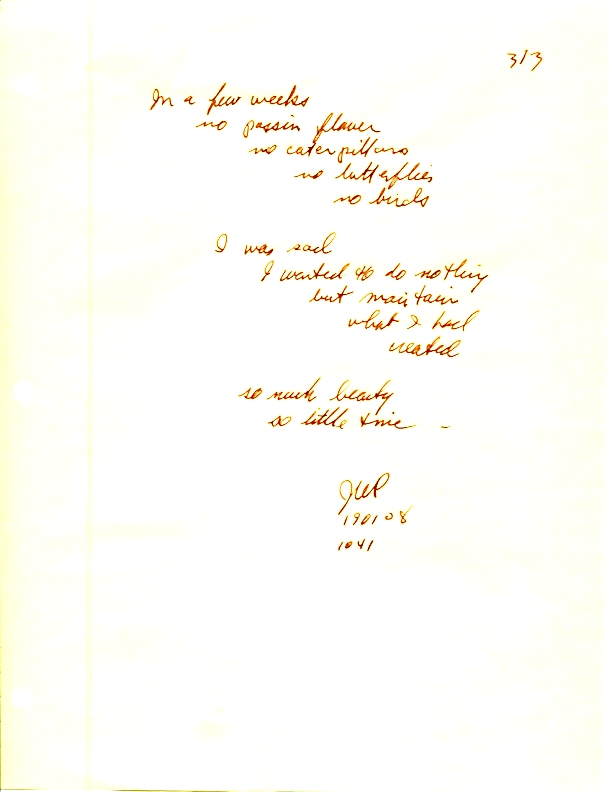 3/3
In a few weeks
no passion flower
no caterpillars
no butterflies
no birds
I was sad
I wanted to do nothing
but maintain
what I had
created
so much beauty
so little time -
JWP
190108
1041